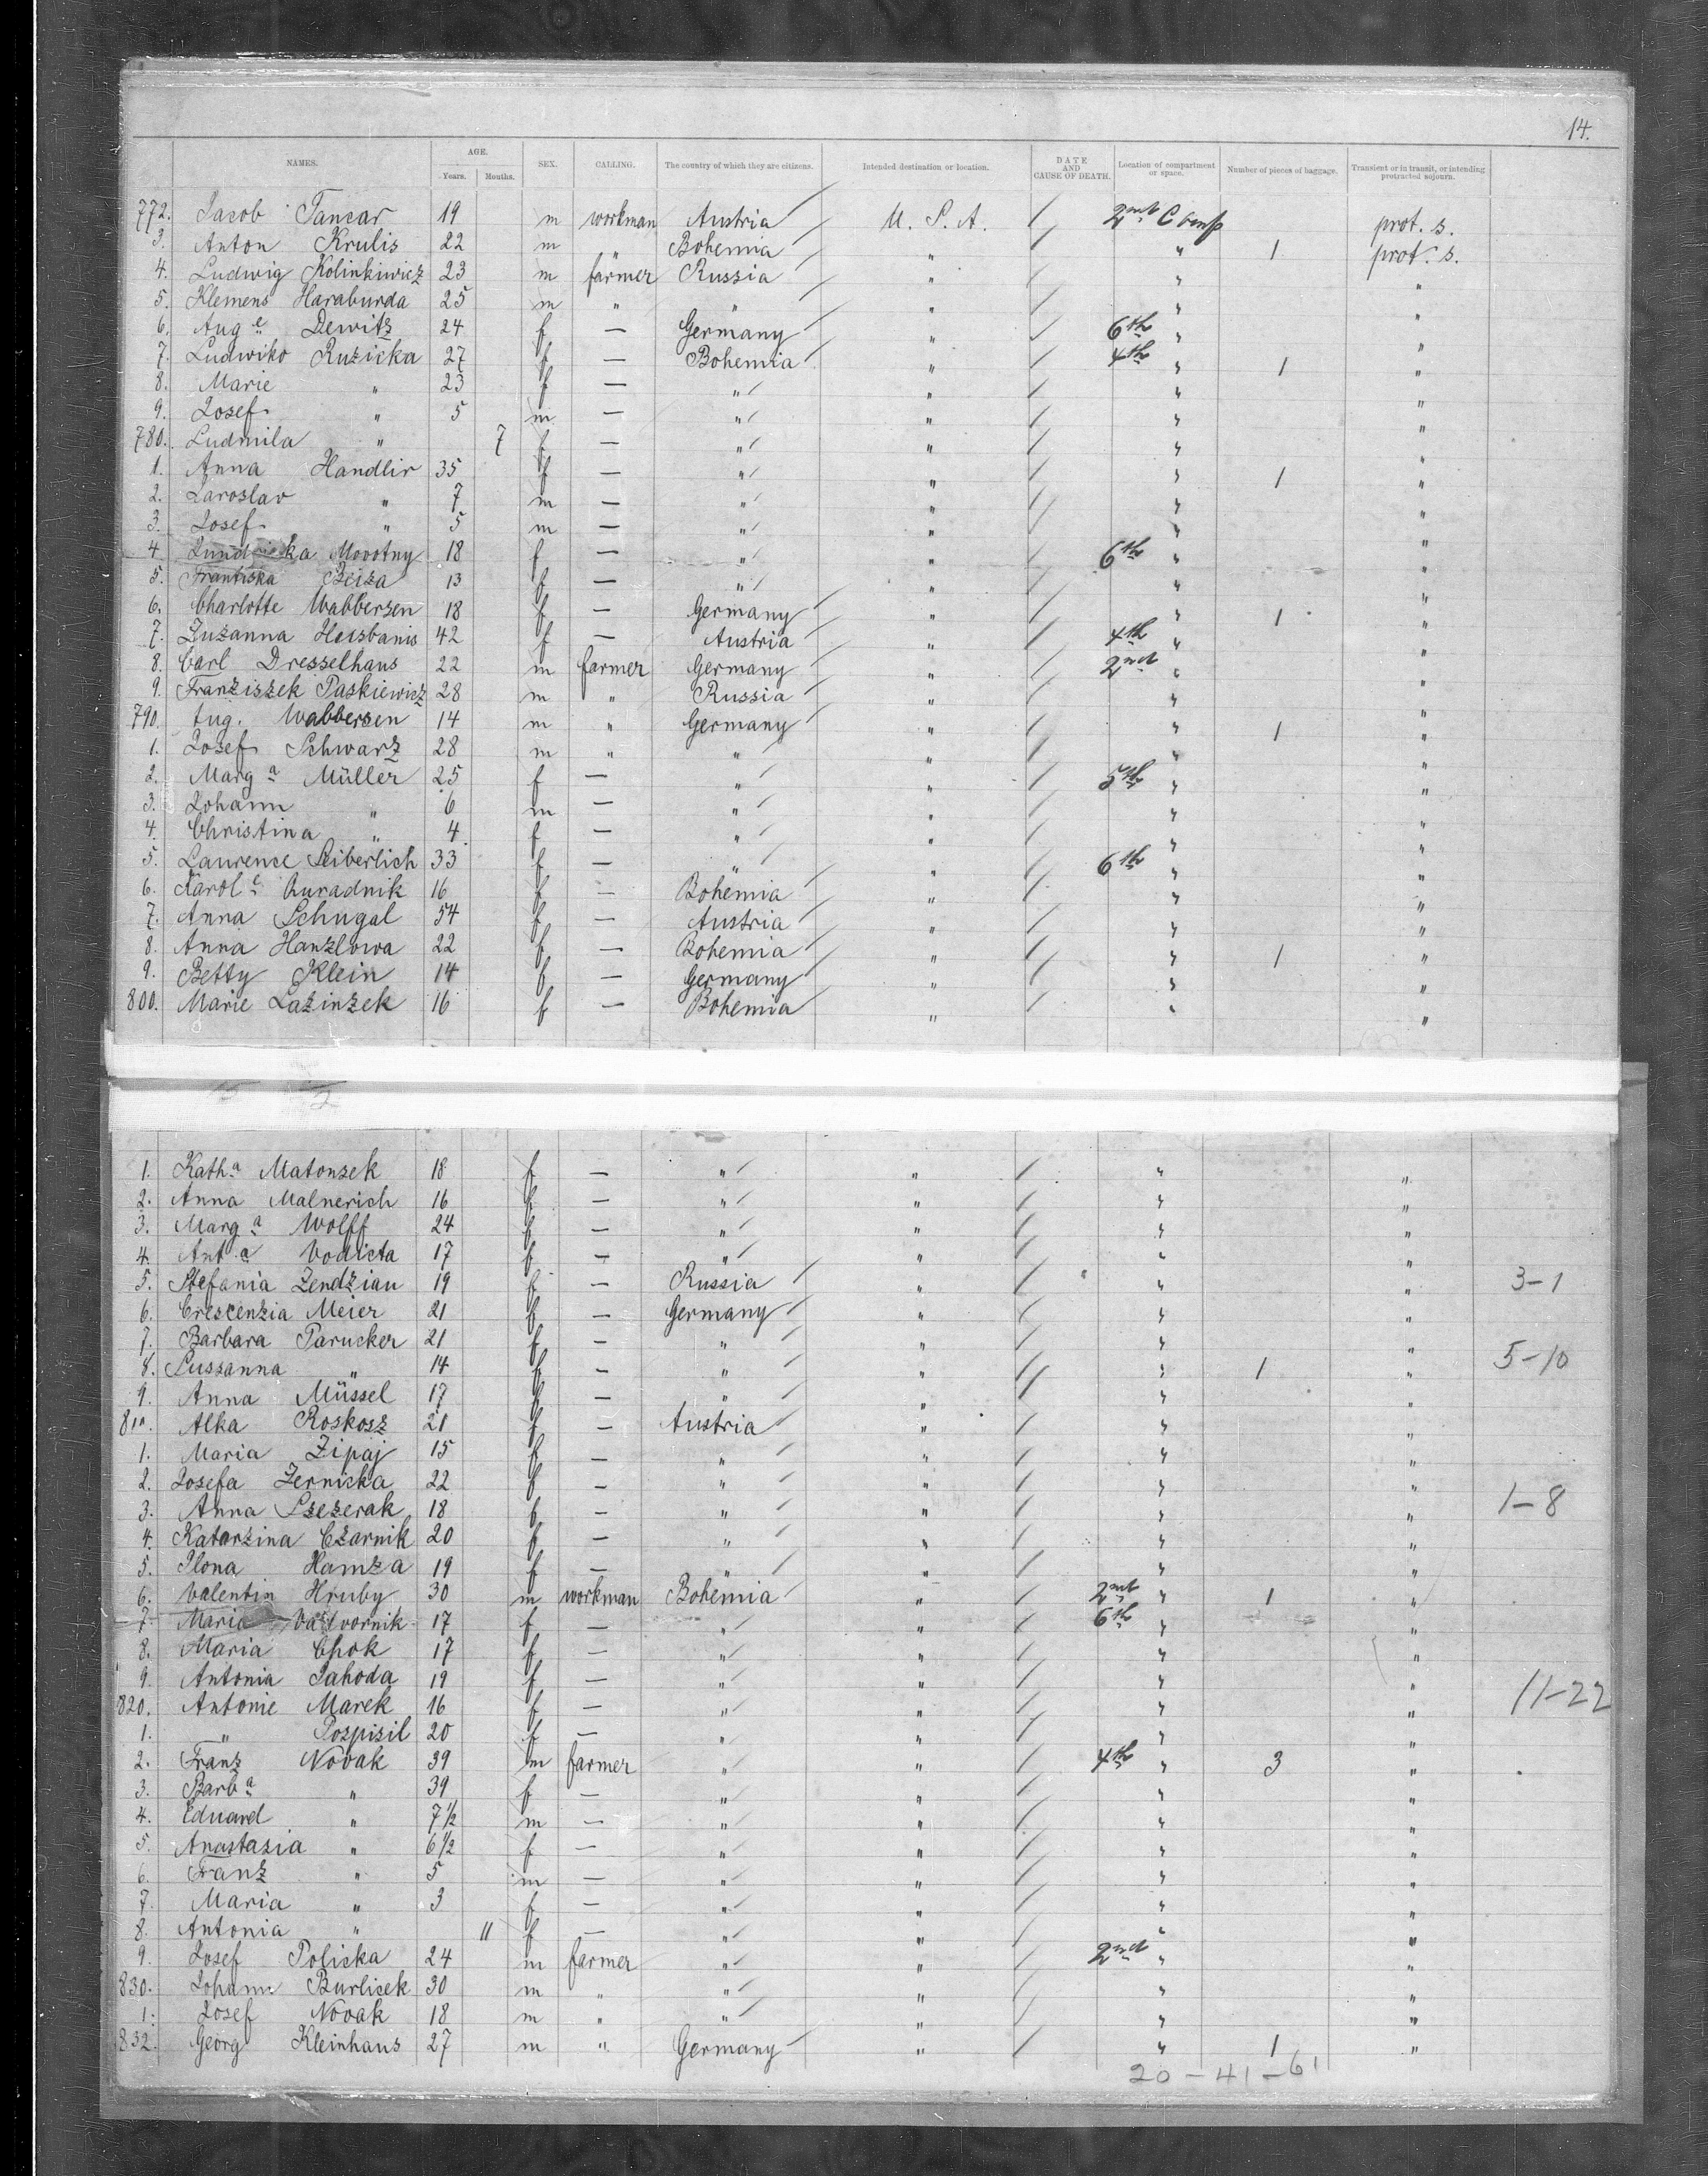 14.
NAMES. AGE. Years. Months. SEX. CALLING. The country of which they are citizens. Intended destination or location. DATE AND CAUSE OF DEATH. Location of compartment or space. Number of pieces of baggage. Transient or in transit, or intending protracted sojourn.
772. Jacob Tancar 19 m workman Austria / U. S. A. / 2nd Comp prot. s.
3. Anton Krulis 22 m " Bohemia / " / " 1 prot. s.
4. Ludwig Kolinkiwicz 23 m farmer Russia / " / " "
5. Klemens Haraburda 25 m " " / " / " "
6. Auge Dewitz 24 f — Germany / " / 6th " "
7. Ludwiko Ruzicka 27 f — Bohemia / " / 4th " 1 "
8. Marie " 23 f — " / " / " "
9. Josef " 5 m — " / " / " "
780. Ludmila " 7 f — " / " / " "
1. Anna Handlir 35 f — " / " / " 1 "
2. Jaroslav " 7 m — " / " / " "
3. Josef " 5 m — " / " / " "
4. Movotny 18 f — " / " / 6th " "
5. Frantiska Beiza 13 f — " / " / " "
6. Charlotte Wabbersen 18 f — Germany / " / " 1 "
7. Zuzanna 42 f — Austria / " / 4th " "
8. Carl Dresselhaus 22 m farmer Germany / " / 2nd " "
9. Franziszek Paskiewicz 28 m " Russia / " / " "
790. Aug. Wabbersen 14 m " Germany / " / " 1 "
1. Josef Schwarz 28 m " " / " / " "
2. Marga Müller 25 f — " / " / 5th " "
3. Johann " 6 m — " / " / " "
4. Christina " 4 f — " / " / " "
5. Laurence Seiberlich 33 f — " / " / 6th " "
6. Karole Auradnik 16 f — Bohemia / " / " "
7. Anna Schugal 54 f — Austria / " / " "
8. Anna Hanzlowa 22 f — Bohemia / " / " 1 "
9. Betty Klein 14 f — Germany / " / " "
800. Marie Lazinzek 16 f — Bohemia / " / " "
1. Katha Matonsek 18 f — " / " / " "
2. Anna Malnerich 16 f — " / " / " "
3. Marga Wolff 24 f — " / " / " "
4. Anta Vodicta 17 f — " / " / " "
5. Stefania Zendzian 19 f — Russia / " / " " 3-1
6. Crescenzia Meier 21 f — Germany / " / " "
7. Barbara Parucker 21 f — " / " / " "
8. Sussanna " 14 f — " / " / " 1 " 5-10
9. Anna Müssel 17 f — " / " / " "
810. Alka Roskosz 21 f — Austria / " / " "
1. Maria Zipaj 15 f — " / " / " "
2. Josefa Zernicka 22 f — " / " / " "
3. Anna Szezerak 18 f — " / " / " " 1-8
4. Katarzina Czarnik 20 f — " / " / " "
5. Ilona Hamza 19 f — " / " / " "
6. Valentin Hruby 30 m workman Bohemia / " / 2nd " 1 "
7. Maria 17 f — " / " / 6th " "
8. Maria Chok 17 f — " / " / " "
9. Antonia Jahoda 19 f — " / " / " "
820. Antonie Marek 16 f — " / " / " " 11-22
1. " Pospisil 20 f — " / " / " "
2. Franz Novak 39 m farmer " / " / 4th " 3 "
3. Barba " 39 f — " / " / " "
4. Eduard " 7 1/2 m — " / " / " "
5. Anastasia " 6 1/2 f — " / " / " "
6. Franz " 5 m — " / " / " "
7. Maria " 3 f — " / " / " "
8. Antonia " 11 f — " / " / " "
9. Josef Policka 24 m farmer " / " / 2nd " "
830. Johann Burlisek 30 m " " / " / " "
1. Josef Novak 18 m " " / " / " "
832. Georg Kleinhaus 27 m " Germany / " / " 1 "
20 - 41 - 61